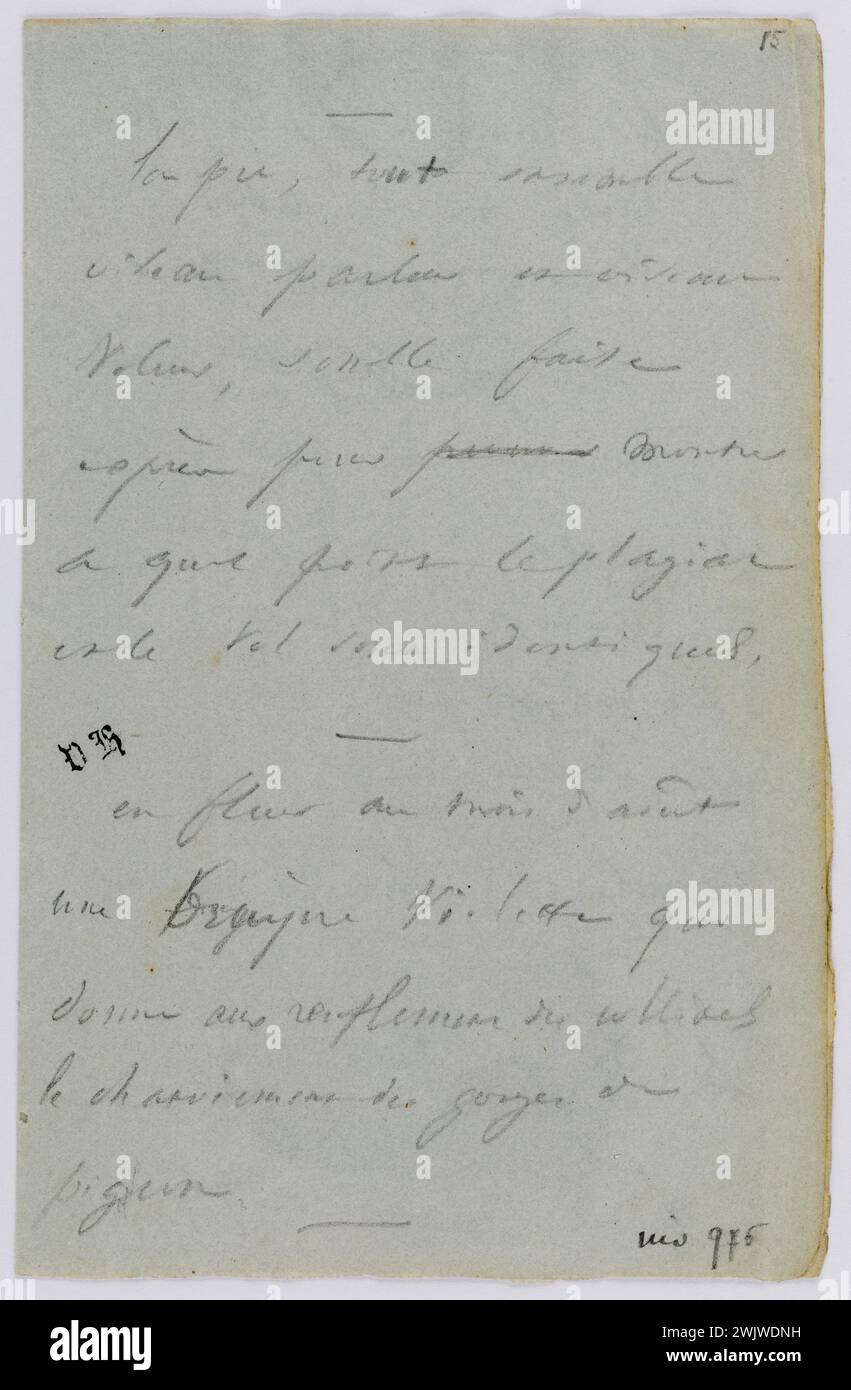 15
La pie, tout ensemble
oiseau parleur et oiseau
voleur, semble faite
exprès pour montrer
à quel point le plagiat
et le vol sont identiques.
en fleur au mois d'août
une bruyère violette qui
donne aux renflements des collines
le chatoiement des gorges de
pigeon
976
alamy
Image ID: 2WJWDNH
www.alamy.com